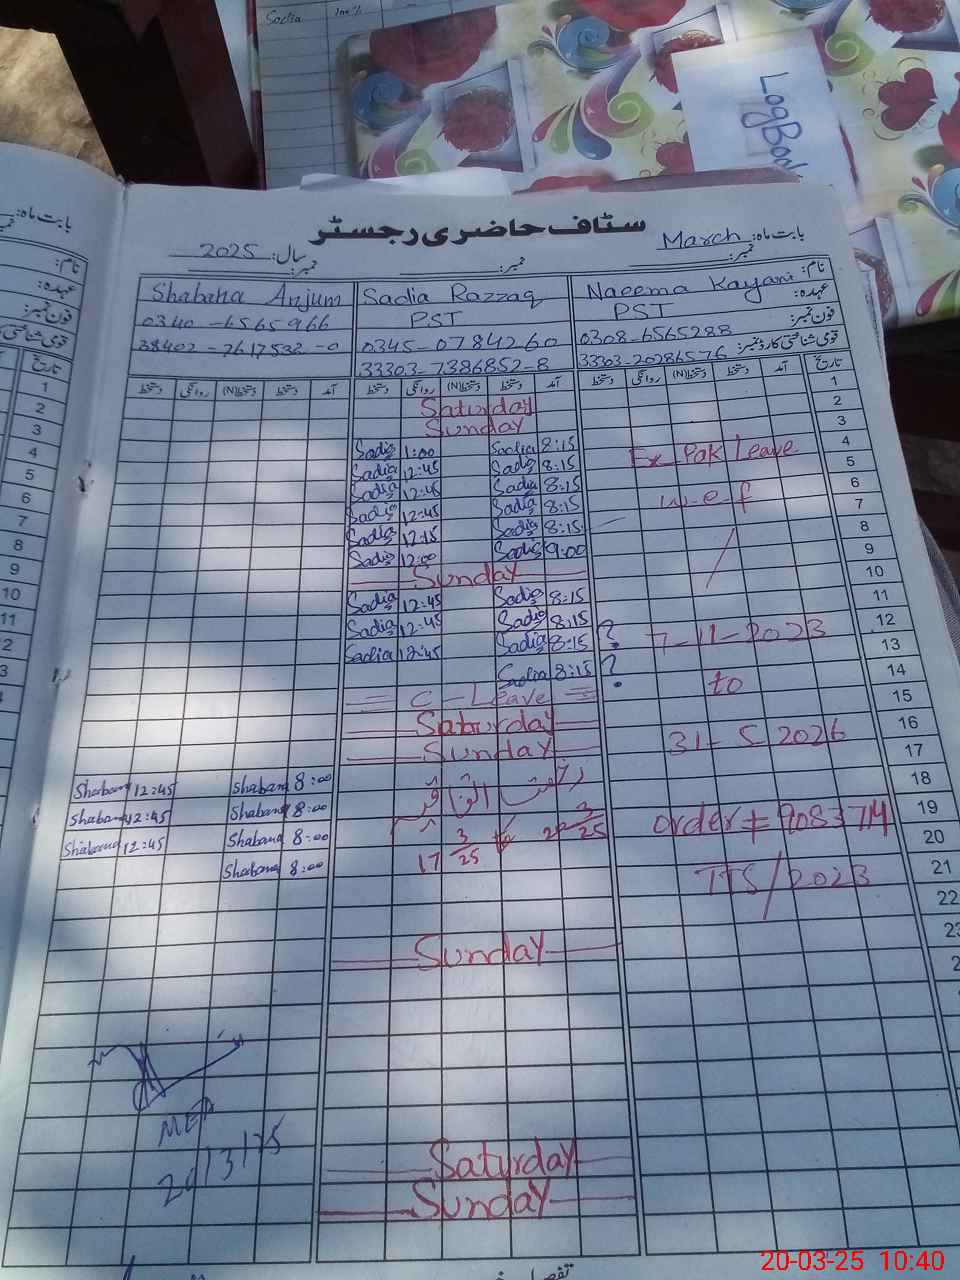 Sadia
LogBook
سٹاف حاضری رجسٹر
بابت ماہ: March
سال: 2025
نمبر: نمبر: نمبر:
بابت ماہ:
نام: Naeema Kayani Sadia Razzaq Shabana Anjum
عہدہ: PST PST
فون نمبر: 0308-6565288 0345-0784260 0340-6565966
قومی شناختی کارڈ نمبر: 33303-20286576 33303-7386852-8 38402-2617532-0
تاریخ آمد دستخط دستخط(N) روانگی دستخط آمد دستخط دستخط(N) روانگی دستخط آمد دستخط دستخط(N) روانگی دستخط
1 Saturday
2 Sunday
3 Sadia 1:00 Sadia 8:15
4 Sadia 12:45 Sadia 8:15 Ex Pak Leave
5 Sadia 12:45 Sadia 8:15
6 Sadia 12:45 Sadia 8:15 w-e-f
7 Sadia 12:15 Sadia 8:15
8 Sadia 12:00 Sadia 9:00
9 Sunday
10 Sadia 12:45 Sadia 8:15
11 Sadia 12:45 Sadia 8:15
12 Sadia 12:45 Sadia 8:15 ? 7-11-2023
13 Sadia 8:15 ?
14 C-Leave to
15 Saturday
16 Sunday 31-5-2026
17 Shabana 12:45 Shabana 8:00
18 Shabana 12:45 Shabana 8:00
19 Shabana 12:45 Shabana 8:00 17 3/25 3/25 order # 9083714
20 Shabana 8:00
21 TTS/2023
22
23 Sunday
Saturday
Sunday
20/3/25
20-03-25 10:40